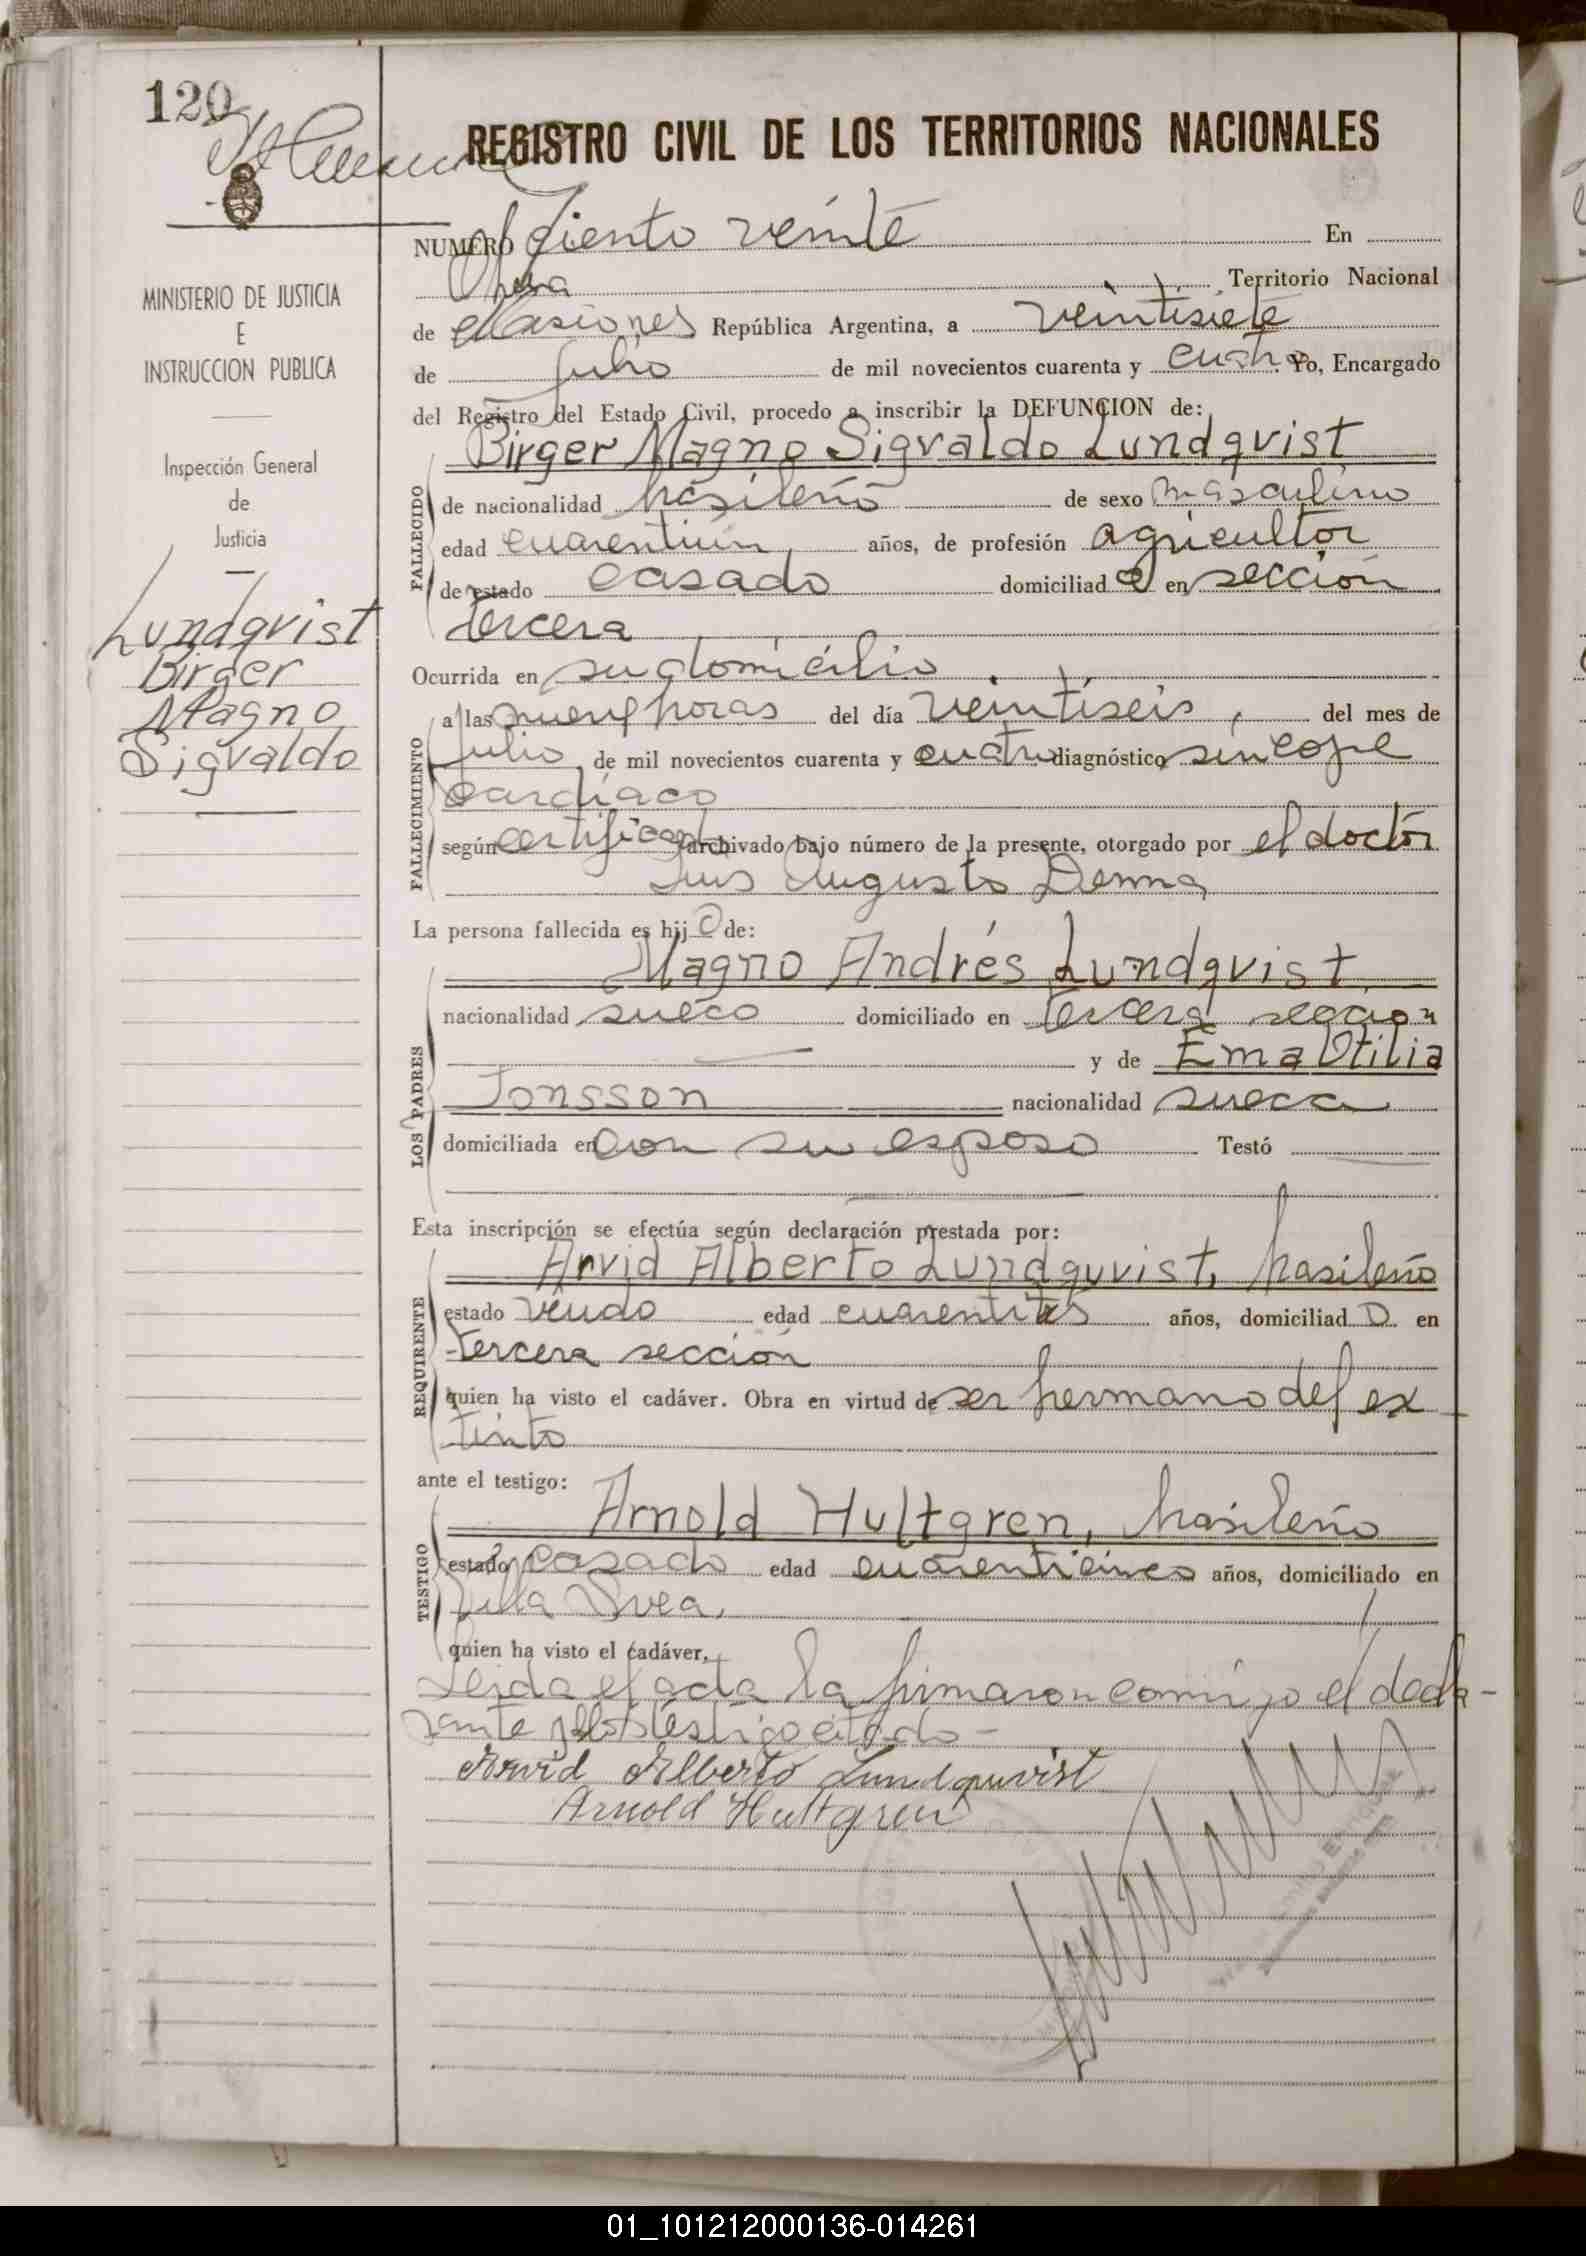 120
REGISTRO CIVIL DE LOS TERRITORIOS NACIONALES
MINISTERIO DE JUSTICIA
E
INSTRUCCION PUBLICA
Inspección General
de
Justicia
Lundqvist
Birger
Magno
Sigvaldo
NUMERO Ciento veinte En
Obera Territorio Nacional
de Misiones República Argentina, a veintisiete
de julio de mil novecientos cuarenta y cuatro Yo, Encargado
del Registro del Estado Civil, procedo a inscribir la DEFUNCION de:
Birger Magno Sigvaldo Lundqvist
FALLECIDO
de nacionalidad brasileño de sexo masculino
edad cuarentiun, años, de profesión agricultor
de estado casado domiciliad o en sección
tercera
Ocurrida en su domicilio
FALLECIMIENTO
a las nueve horas del día veintiseis, del mes de
julio de mil novecientos cuarenta y cuatro diagnóstico síncope
cardíaco
según certificado archivado bajo número de la presente, otorgado por el doctor
Luis Augusto Derna
La persona fallecida es hij o de:
LOS PADRES
Magno Andrés Lundqvist
nacionalidad sueco domiciliado en tercera sección
y de Ema Otilia
Jonsson nacionalidad sueca
domiciliada en con su esposo Testó
Esta inscripción se efectúa según declaración prestada por:
REQUIRENTE
Arvid Alberto Lundquvist, brasileño
estado viudo edad cuarentitres años, domiciliad o en
tercera sección
quien ha visto el cadáver. Obra en virtud de ser hermano del ex
tinto
ante el testigo:
TESTIGO
Arnold Hultgren, brasileño
estado casado edad cuarenticinco años, domiciliado en
Villa Svea,
quien ha visto el cadáver,
Leida el acta la firmaron conmigo el decla-
rante y el testigo citado -
Arvid Alberto Lundquvist
Arnold Hultgren
01_101212000136-014261